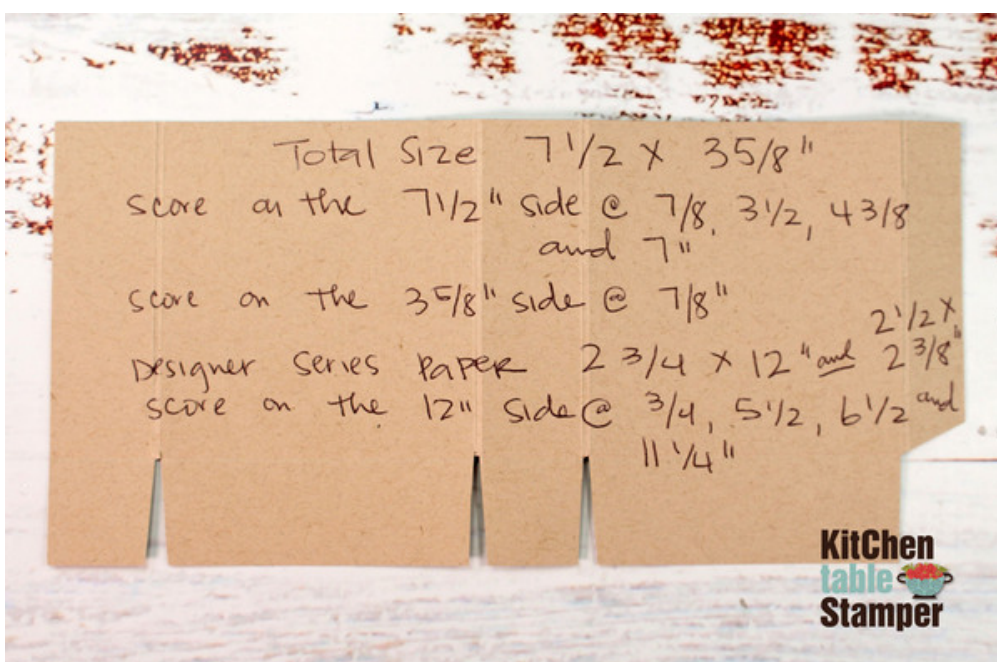 Total Size 7 1/2 X 3 5/8"
score on the 7 1/2" side @ 7/8, 3 1/2, 4 3/8
and 7"
score on the 3 5/8" side @ 7/8"
Designer Series Paper 2 3/4 X 12" and 2 1/2 X 2 3/8"
score on the 12" side @ 3/4, 5 1/2, 6 1/2 and
11 1/4"
KitChen
table
Stamper